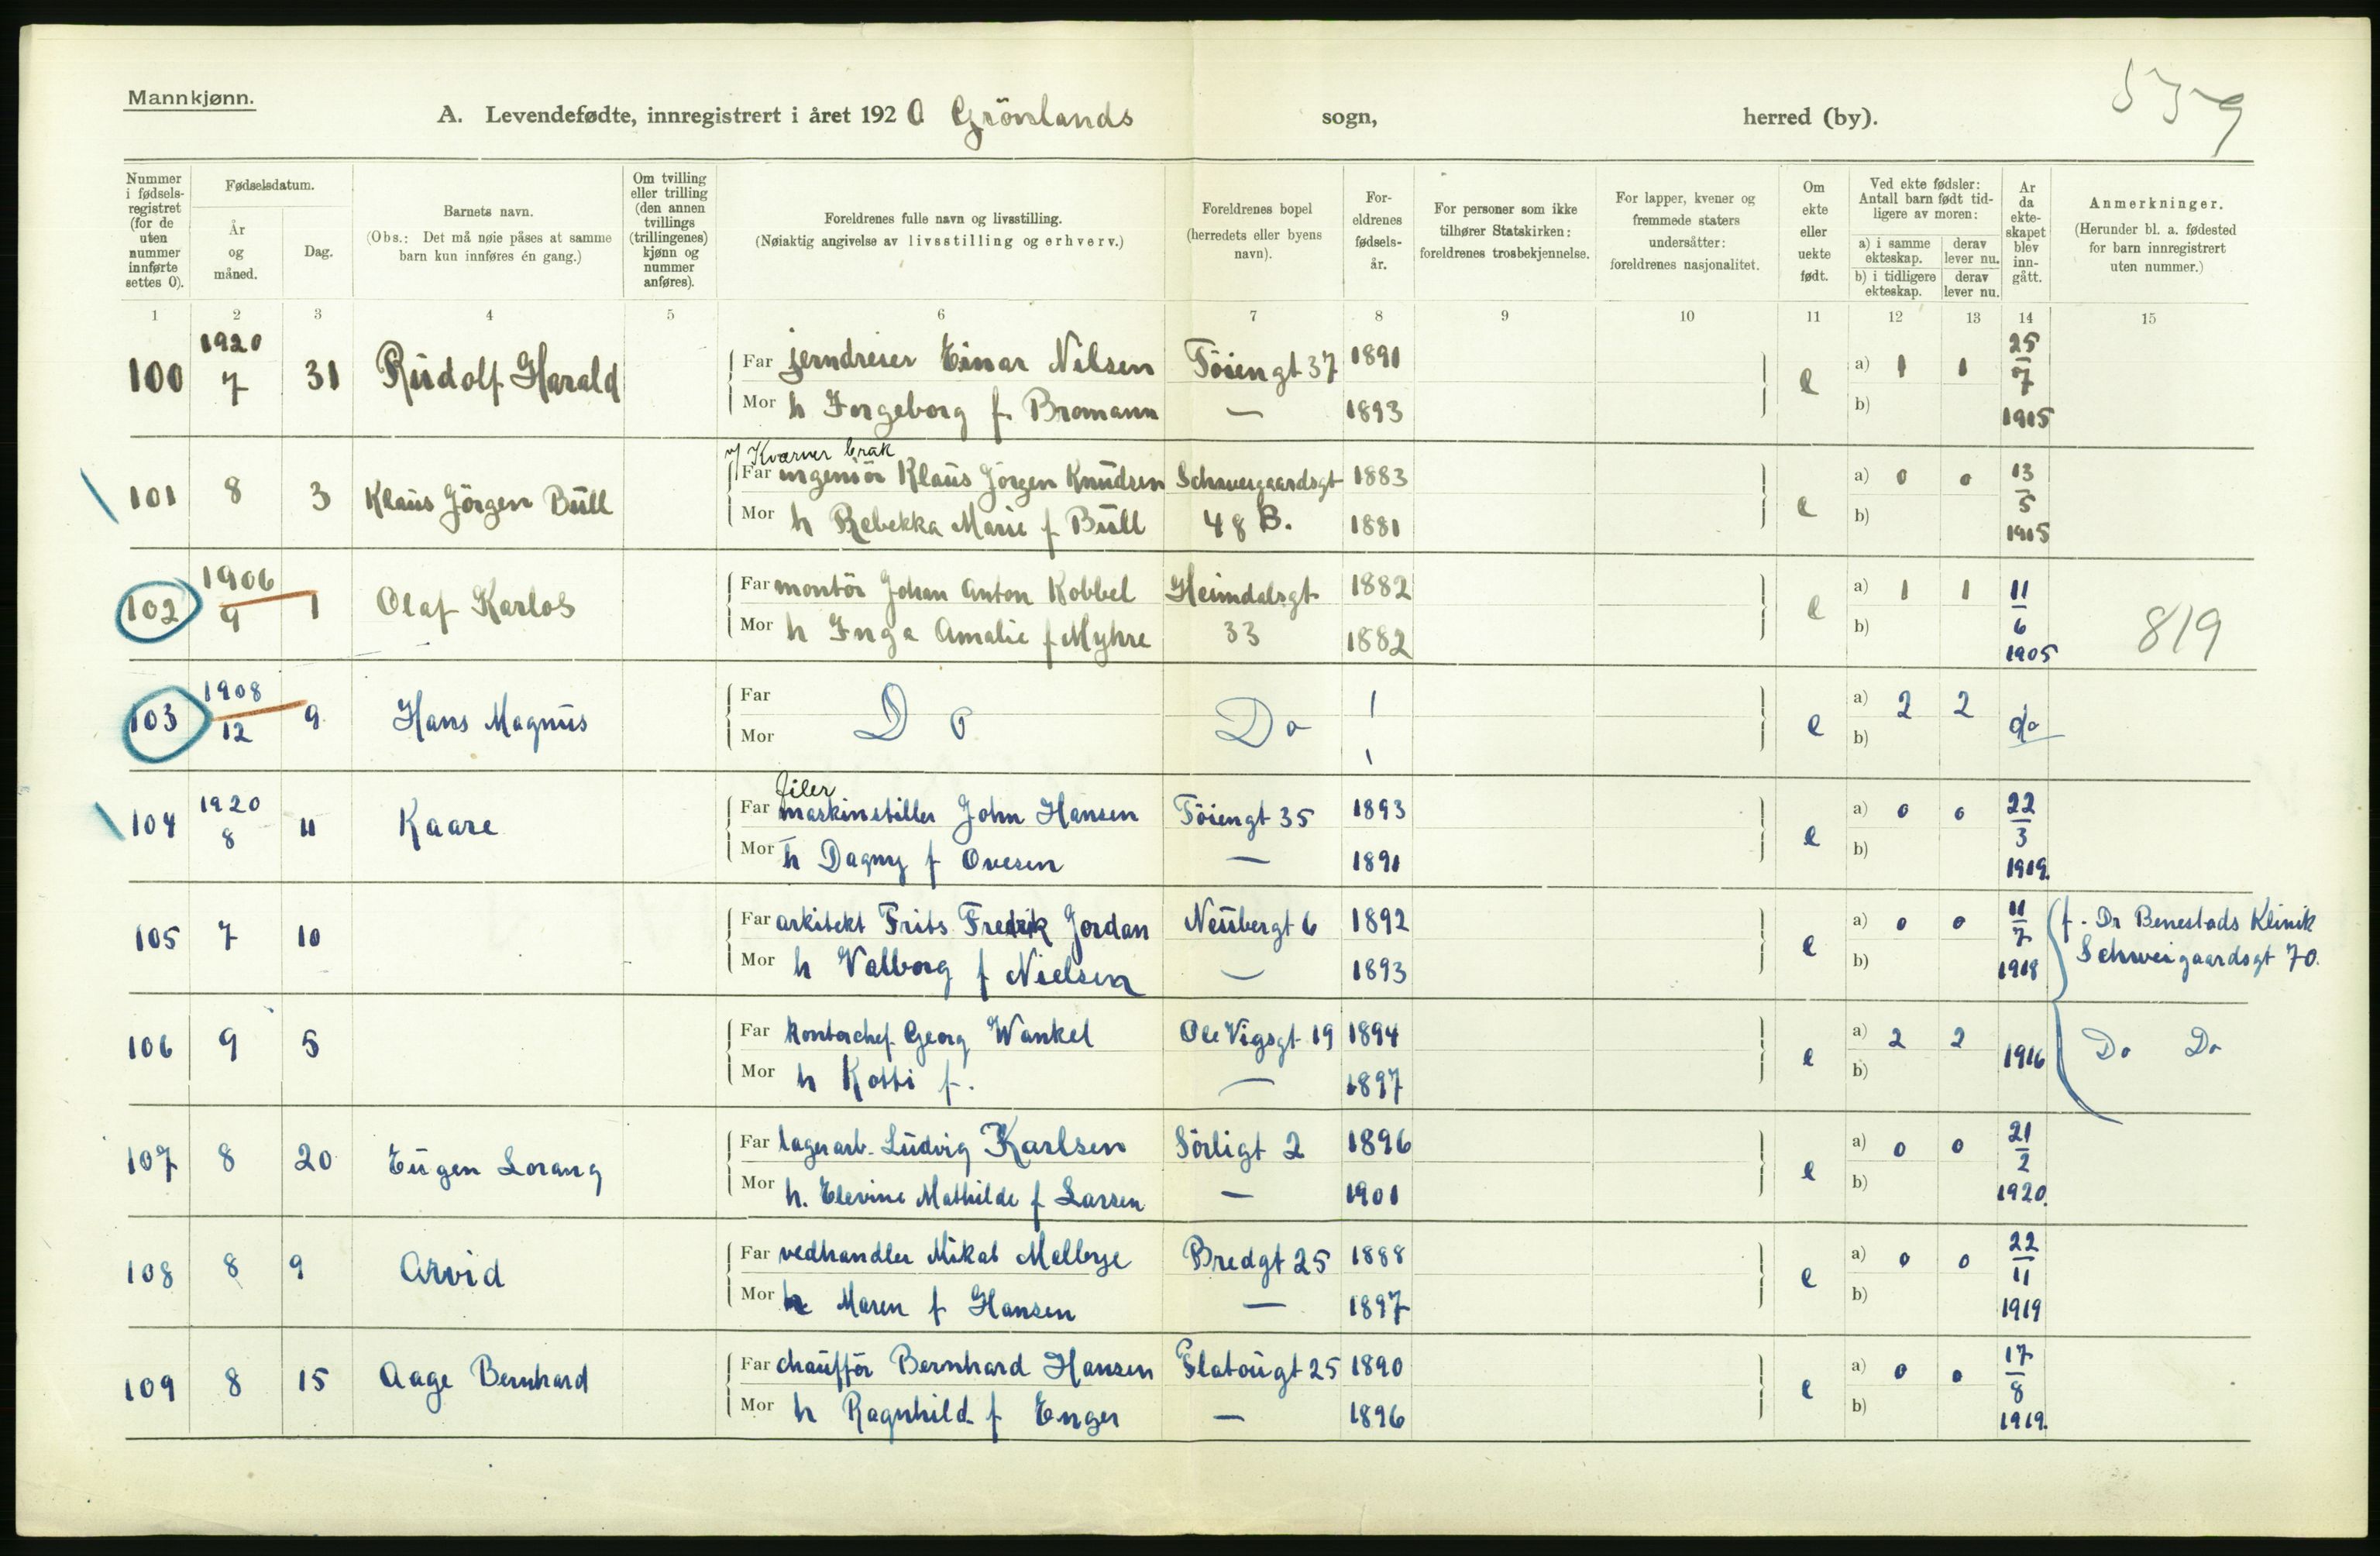 Mannkjønn.
A. Levendefødte, innregistrert i året 1920 Grönlands sogn, herred (by).
539
Nummer i fødselsregistret (for de uten nummer innførte settes 0).
Fødselsdatum.
År og måned.
Dag.
Barnets navn.
(Obs.: Det må nøie påses at samme barn kun innføres én gang.)
Om tvilling eller trilling (den annen tvillings (trillingenes) kjønn og nummer anføres).
Foreldrenes fulle navn og livsstilling.
(Nøiaktig angivelse av livsstilling og erhverv.)
Foreldrenes bopel (herredets eller byens navn).
Foreldrenes fødselsår.
For personer som ikke tilhører Statskirken: foreldrenes trosbekjennelse.
For lapper, kvener og fremmede staters undersåtter: foreldrenes nasjonalitet.
Om ekte eller uekte født.
Ved ekte fødsler: Antall barn født tidligere av moren:
a) i samme ekteskap. derav lever nu.
b) i tidligere ekteskap. derav lever nu.
År da ekteskapet blev inngått.
Anmerkninger.
(Herunder bl. a. fødested for barn innregistrert uten nummer.)
1 2 3 4 5 6 7 8 9 10 11 12 13 14 15
100 1920 7 31 Rudolf Harald Far jerndreier Einar Nilsen Töiengt 37 1891 e a) 1 1 25/7 1915
Mor h Ingeborg f. Bromann — 1893 b)
v/ Kværner bruk
101 8 3 Klaus Jörgen Büll Far ingeniör Klaus Jörgen Knudsen Schweigaardsgt 1883 e a) 0 0 13/5 1915
Mor h Rebekka Marie f Büll 48 B. 1881 b)
102 1906 9 1 Olaf Karlos Far montör Johan Anton Kobbel Heimdalsgt 1882 e a) 1 1 11/6 1905 819
Mor h Inga Amalie f Myhre 33 1882 b)
103 1908 12 9 Hans Magnus Far Do Do e a) 2 2 do
Mor b)
filer
104 1920 8 11 Kaare Far maskinstiller John Hansen Töiengt 35 1893 e a) 0 0 22/3 1919.
Mor h Dagny f Ovesen — 1891 b)
105 7 10 Far arkitekt Frits Fredrik Jordan Neubergt 6 1892 e a) 0 0 11/7 1918 f. Dr Benestads Klinik
Mor h Valborg f Nielsen — 1893 b) Schweigaardsgt 70.
106 9 5 Far kontorchef Georg Wankel Ole Vigsgt 19 1894 e a) 2 2 1916 Do Do
Mor h Kotti f. — 1897 b)
107 8 20 Eugen Lorang Far lagerarb. Ludvig Karlsen Sörligt 2 1896 e a) 0 0 21/2 1920.
Mor h. Elevine Mathilde f Larsen — 1901 b)
108 8 9 Arvid Far vedhandler Mikal Melbye Bredgt 25 1888 e a) 0 0 22/11 1919
Mor h Maren f Hansen — 1897 b)
109 8 15 Aage Bernhard Far chaufför Bernhard Hansen Platougt 25 1890 e a) 0 0 17/8 1919.
Mor h Ragnhild f Enger — 1896 b)